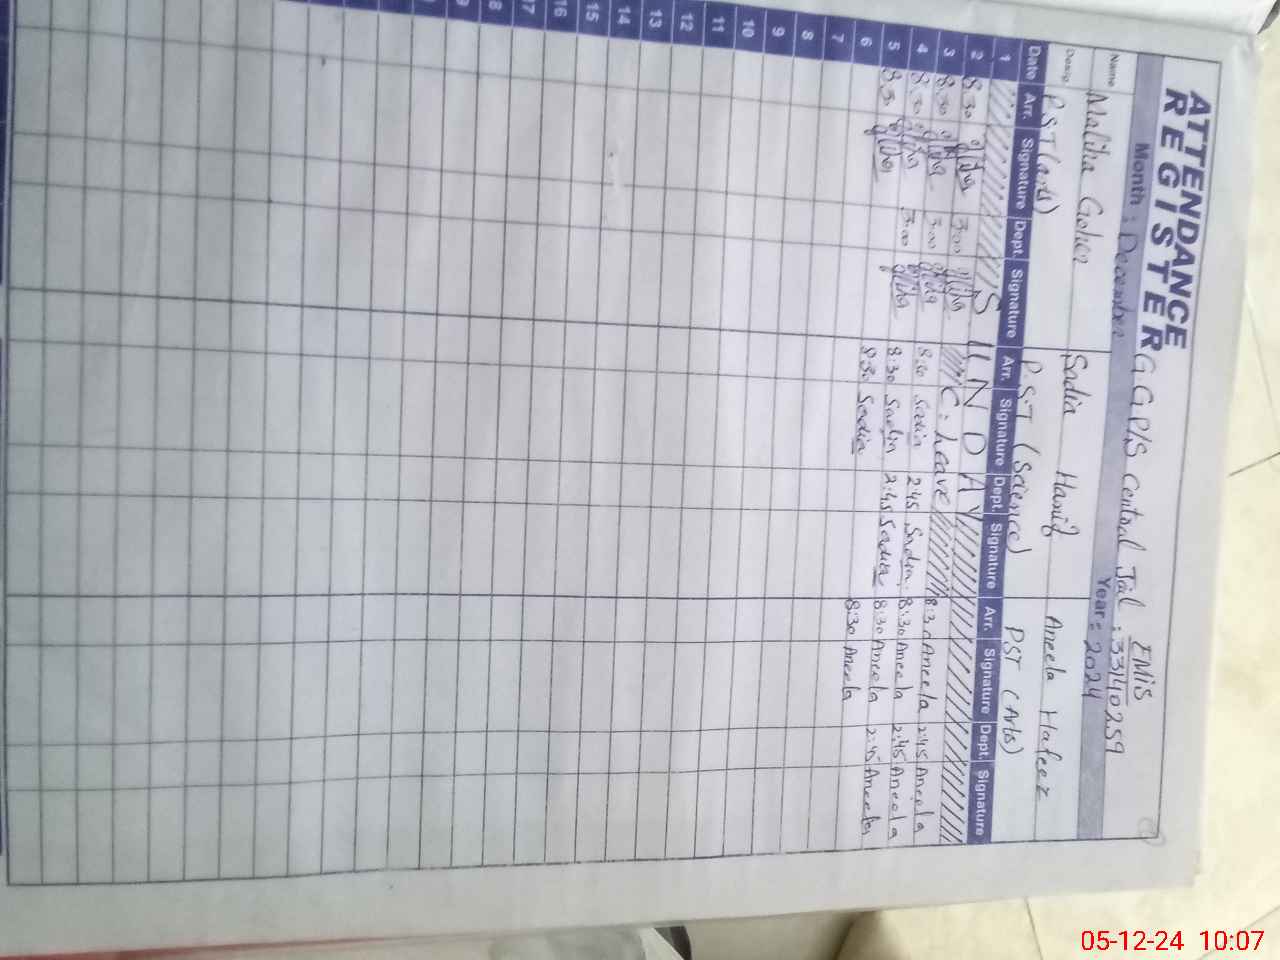 ATTENDANCE
REGISTER
GGP/S Central Jail : EMIS 33140259
Month : December Year = 2024
Name Maliha Goher Sadia Hanif Aneela Hafeez
P.S.T (arts) P.S.T (Science) PST (Arts)
Date Arr. Signature Dept. Signature Arr. Signature Dept. Signature Arr. Signature Dept. Signature
1 SUNDAY
2 8:30 3:00 C. Leave 8:30 Aneela 2:45 Aneela
3 8:30 3:00 8:30 Sadia 2:45 Sadia 8:30 Aneela 2:45 Aneela
4 8:30 3:00 8:30 Sadia 2:45 Sadia 8:30 Aneela 2:45 Aneela
5 8:30 8:30 Sadia 8:30 Aneela
6
7
8
9
10
11
12
13
14
15
16
17
05-12-24 10:07